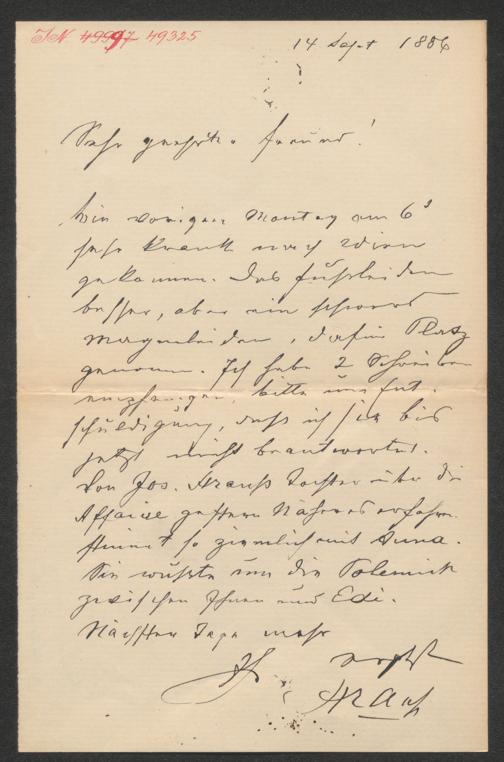 IN 49997 49325
14 Sept 1886
Sehr geehrter Freund!
Bin vorigen Montag am 6t
sehr krank nach Wien
gekommen. Das Fußleiden
besser, aber ein schweres
Magenleiden, dafür Platz
genomen. Ich habe 2 Schreiben
empfangen, bitte um Ent-
schuldigung, daß ich sie bis
jetzt nicht beantwortet.
Von Jos. Strauß Tochter über die
Affaire gestern Näheres erfahren.
stimmt so ziemlich mit Anna.
Sie wußte um die Polemik
zwischen Ihnen und Edi.
Nächster Tage mehr
Ihr